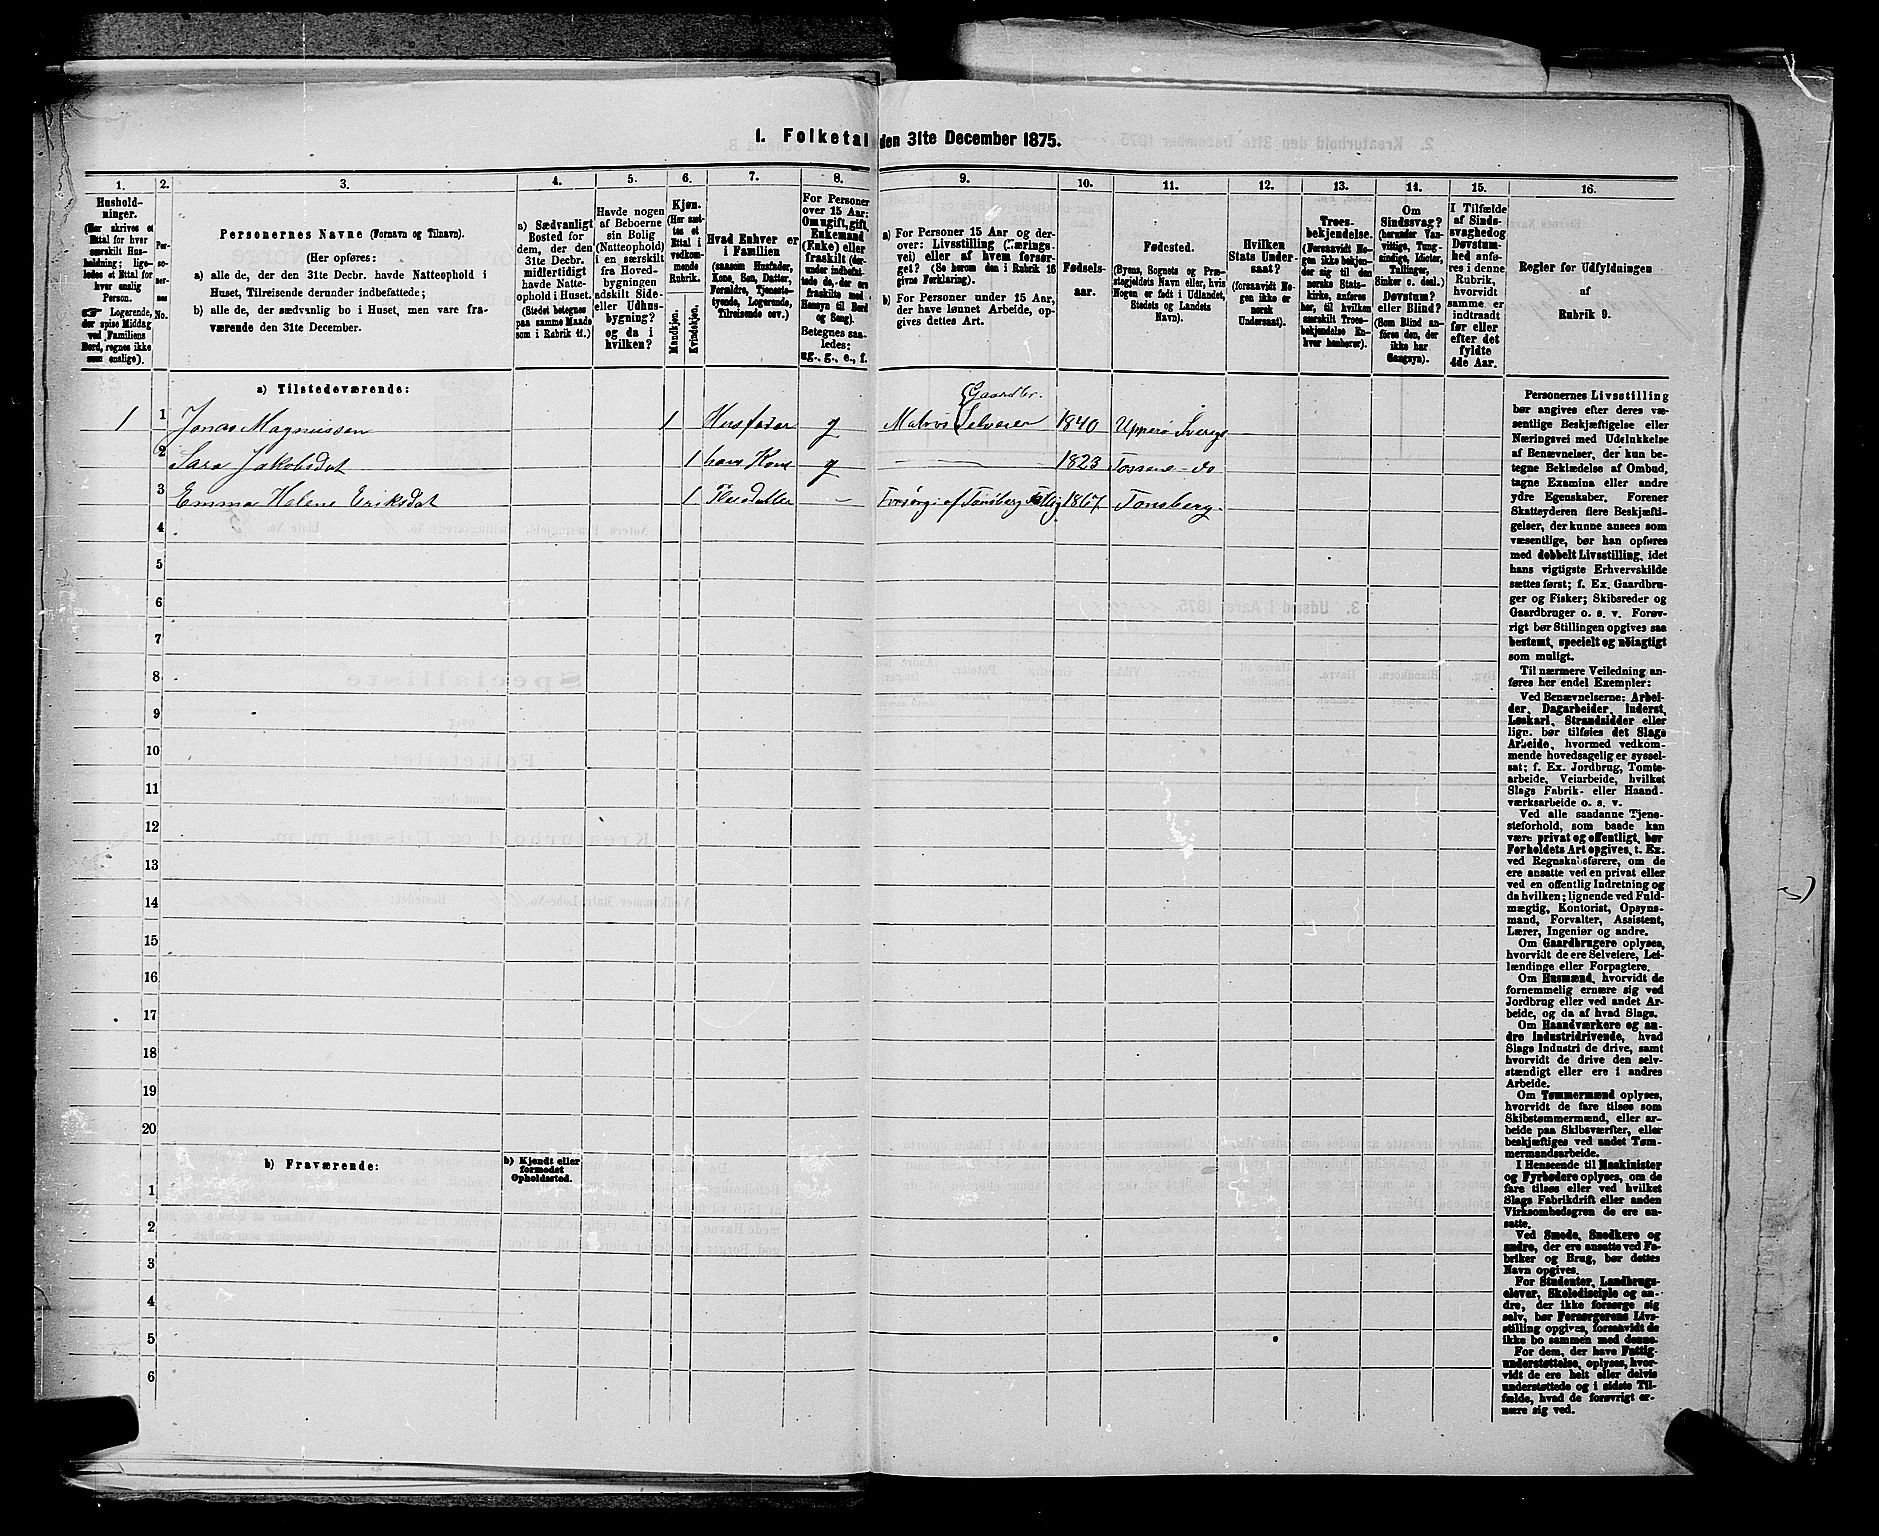 1. Folketal den 31te December 1875.
1. 2. 3. 4. 5. 6. 7. 8. 9. 10. 11. 12. 13. 14. 15. 16.
Hushold-
ninger.
(Her skrives et
Ettal for hver
særskilt Hus-
holdning; lige-
ledes et Ettal for
hver enslig
Person.
☞ Logerende,
der spise Middag
ved Familiens
Bord, regnes ikke
som enslige).
Per-
so-
ner-
nes
No.
Personernes Navne (Fornavn og Tilnavn).
(Her opføres:
a) alle de, der den 31te Decbr. havde Natteophold i
Huset, Tilreisende derunder indbefattede;
b) alle de, der sædvanlig bo i Huset, men vare fra-
værende den 31te December.
a) Sædvanligt
Bosted for
dem, der den
31te Decbr.
midlertidigt
havde Natte-
ophold i Huset.
(Stedet betegnes
paa samme Maade
som i Rubrik 11.)
Havde nogen
af Beboerne
sin Bolig
(Natteophold)
i en særskilt
fra Hoved-
bygningen
adskilt Side-
eller Udhus-
bygning?
og da i
hvilken?
Kjøn.
(Her sæt-
tes et
Ettal i
vedkom-
mende
Rubrik.
Mandkjøn.
Kvindekjøn.
Hvad Enhver er
i Familien
(saasom Husfader,
Kone, Søn, Datter,
Forældre, Tjeneste-
tyende, Logerende,
Tilreisende osv.)
For Personer
over 15 Aar:
Om ugift, gift,
Enkemand
(Enke) eller
fraskilt (der-
under indbefat-
tede de, der ere
fraskilte med
Hensyn til Bord
og Seng).
Betegnes saa-
ledes:
ug., g., e., f.
a) For Personer 15 Aar og der-
over: Livsstilling (Nærings-
vei) eller af hvem forsør-
get? (Se herom den i Rubrik 16
givne Forklaring).
b) For Personer under 15 Aar,
der have lønnet Arbeide, op-
gives dettes Art.
Fødsels-
aar.
Fødested.
(Byens, Sognets og Præ-
stegjeldets Navn eller, hvis
Nogen er født i Udlandet,
Stedets og Landets
Navn).
Hvilken
Stats Under-
saat?
(forsaavidt No-
gen ikke er
norsk
Undersaat).
Troes-
bekjendelse.
(Forsaavidt No-
gen ikke bekjen-
der sig til den
norske Stats-
kirke, anføres
her, til hvilken
særskilt Troes-
bekjendelse En-
hver henhører).
Om
Sindssvag?
(herunder Van-
vittige, Tung-
sindige, Idioter,
Tullinger,
Sinker o. desl.)
Døvstum?
eller Blind?
(Som Blind an-
føres den, der
ikke har
Gangsyn).
I Tilfælde
af Sinds-
svaghed og
Døvstum-
hed anfø-
res i denne
Rubrik,
hvorvidt
samme er
indtraadt
før eller
efter det
fyldte
4de Aar.
Regler for Udfyldningen
af
Rubrik 9.
a) Tilstedeværende:
Gaardbr.
1 1 Jonas Magnussen 1 Husfader g Matros Selveier 1840 Upperö Sverge
2 Sara Jakobsdat 1 hans Kone g — 1823 Tossene - do
3 Emma Helene Eriksdat 1 Pleiedatter - Forsørg. af Tønsberg 1867 Tønsberg
4
5
6
7
8
9
10
11
12
13
14
15
16
17
18
19
20
b) Fraværende:
b) Kjendt eller
formodet
Opholdssted.
1
2
3
4
5
6
Personernes Livsstilling
bør angives efter deres væ-
sentlige Beskjæftigelse eller
Næringsvei med Udelukkelse
af Benævnelser, der kun be-
tegne Beklædelse af Ombud,
tagne Examina eller andre
ydre Egenskaber. Forener
Skatteyderen flere Beskjæfti-
gelser, der kunne ansees som
væsentlige, bør han opføres
med dobbelt Livsstilling, idet
hans vigtigste Erhvervskilde
sættes først; f. Ex. Gaardbru-
ger og Fisker; Skibsreder og
Gaardbruger o. s. v. Forøv-
rigt bør Stillingen opgives saa
bestemt, specielt og nöiagtigt
som muligt.
Til nærmere Veiledning an-
føres her endel Exempler:
Ved Benævnelserne: Arbei-
der, Dagarbeider, Inderst,
Løskarl, Strandsidder eller
lign. bør tilføies det Slags
Arbeide, hvormed vedkom-
mende hovedsagelig er syssel-
sat; f. Ex. Jordbrug, Tomte-
arbeide, Veiarbeide, hvilket
Slags Fabrik- eller Haand-
værksarbeide o. s. v.
Ved alle saadanne Tjene-
steforhold, som baade kan
være privat og offentligt, bør
Forholdets Art opgives, t. Ex.
ved Regnskabsførere, om de
ere ansatte ved en privat eller
ved en offentlig Indretning og
da hvilken; lignende ved Fuld-
mægtig, Kontorist, Opsyns-
mand, Forvalter, Assistent,
Lærer, Ingeniør og andre.
Om Gaardbrugere oplyses,
hvorvidt de ere Selveiere, Lei-
lændinge eller Forpagtere.
Om Husmænd, hvorvidt de
fornemmelig ernære sig ved
Jordbrug eller ved andet Ar-
beide, og da af hvad Slags.
Om Haandværkere og an-
dre Industridrivende, hvad
Slags Industri de drive, samt
hvorvidt de drive den selv-
stændigt eller ere i andres
Arbeide.
Om Tømmermænd oplyses,
hvorvidt de fare tilsøs som
Skibstømmermænd, eller ar-
beide paa Skibsværfter, eller
beskjæftiges ved andet Tøm-
mermandsarbeide.
I Henseende til Maskinister
og Fyrbødere oplyses, om de
fare tilsøs eller ved hvilket
Slags Fabrikdrift eller anden
Virksomhedsgren de ere an-
satte.
Ved Smede, Snedkere og
andre, der ere ansatte ved Fa-
briker og Brug, bør dettes
Navn opgives.
For Studenter, Landbrugs-
elever, Skoledisciple og an-
dre, der ikke forsørge sig
selv, bør Forsørgerens Livs-
stilling opgives, forsaavidt de
ikke bo sammen med denne.
For dem, der have Fattig-
understøttelse, oplyses, hvor-
vidt de ere helt eller delvis
understøttede og i sidste Til-
fælde, hvad de forøvrigt er-
nære sig ved.